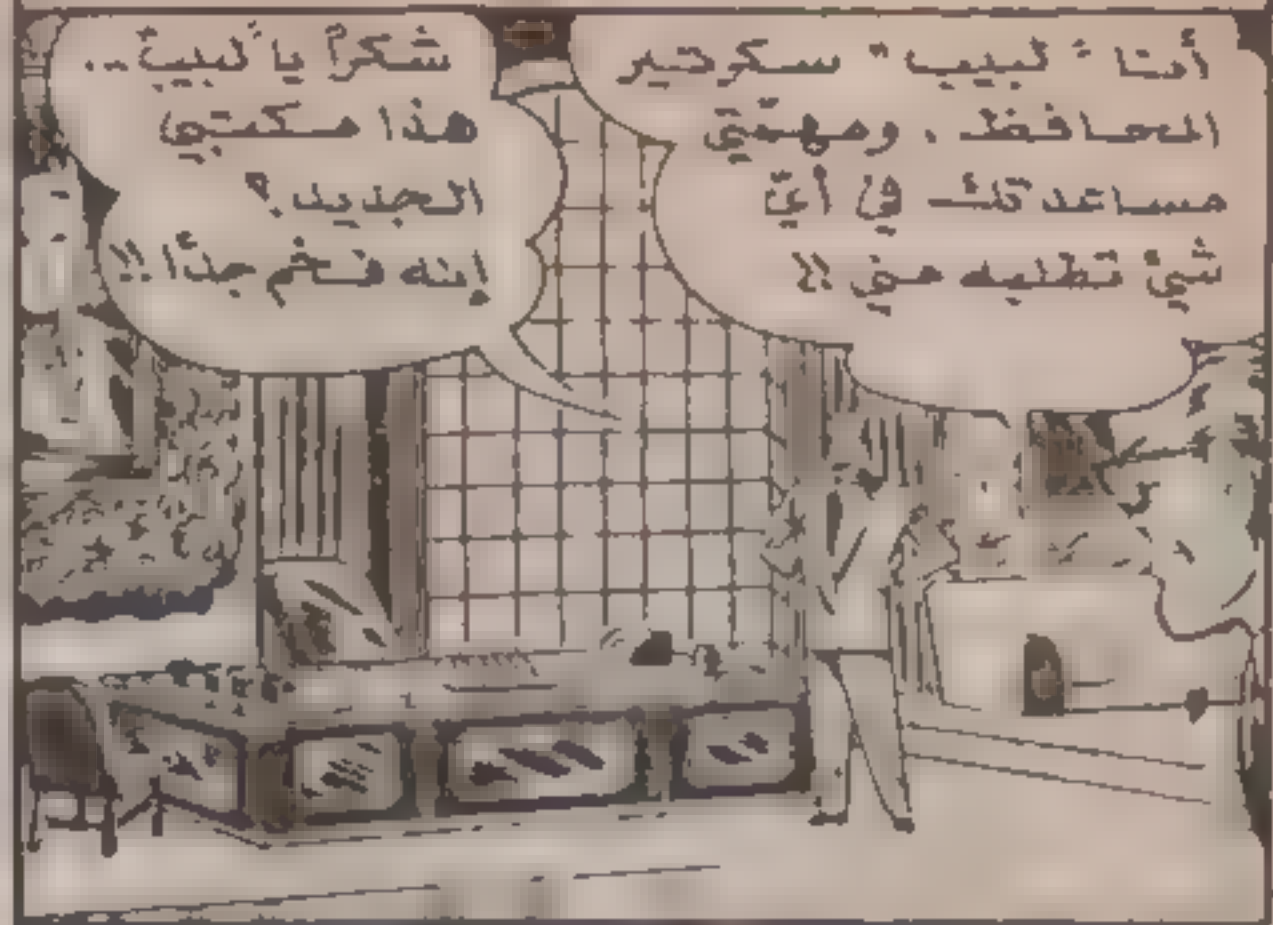 أنا "لبيب" سكرتير
المحافظ ، ومهمّتي
مساعدتك في أيّ
شيّ تطلبه مني !!
شكراً يا "لبيب" ..
هذا مكتبي
الجديد ؟
إنه فخم جدًا !!